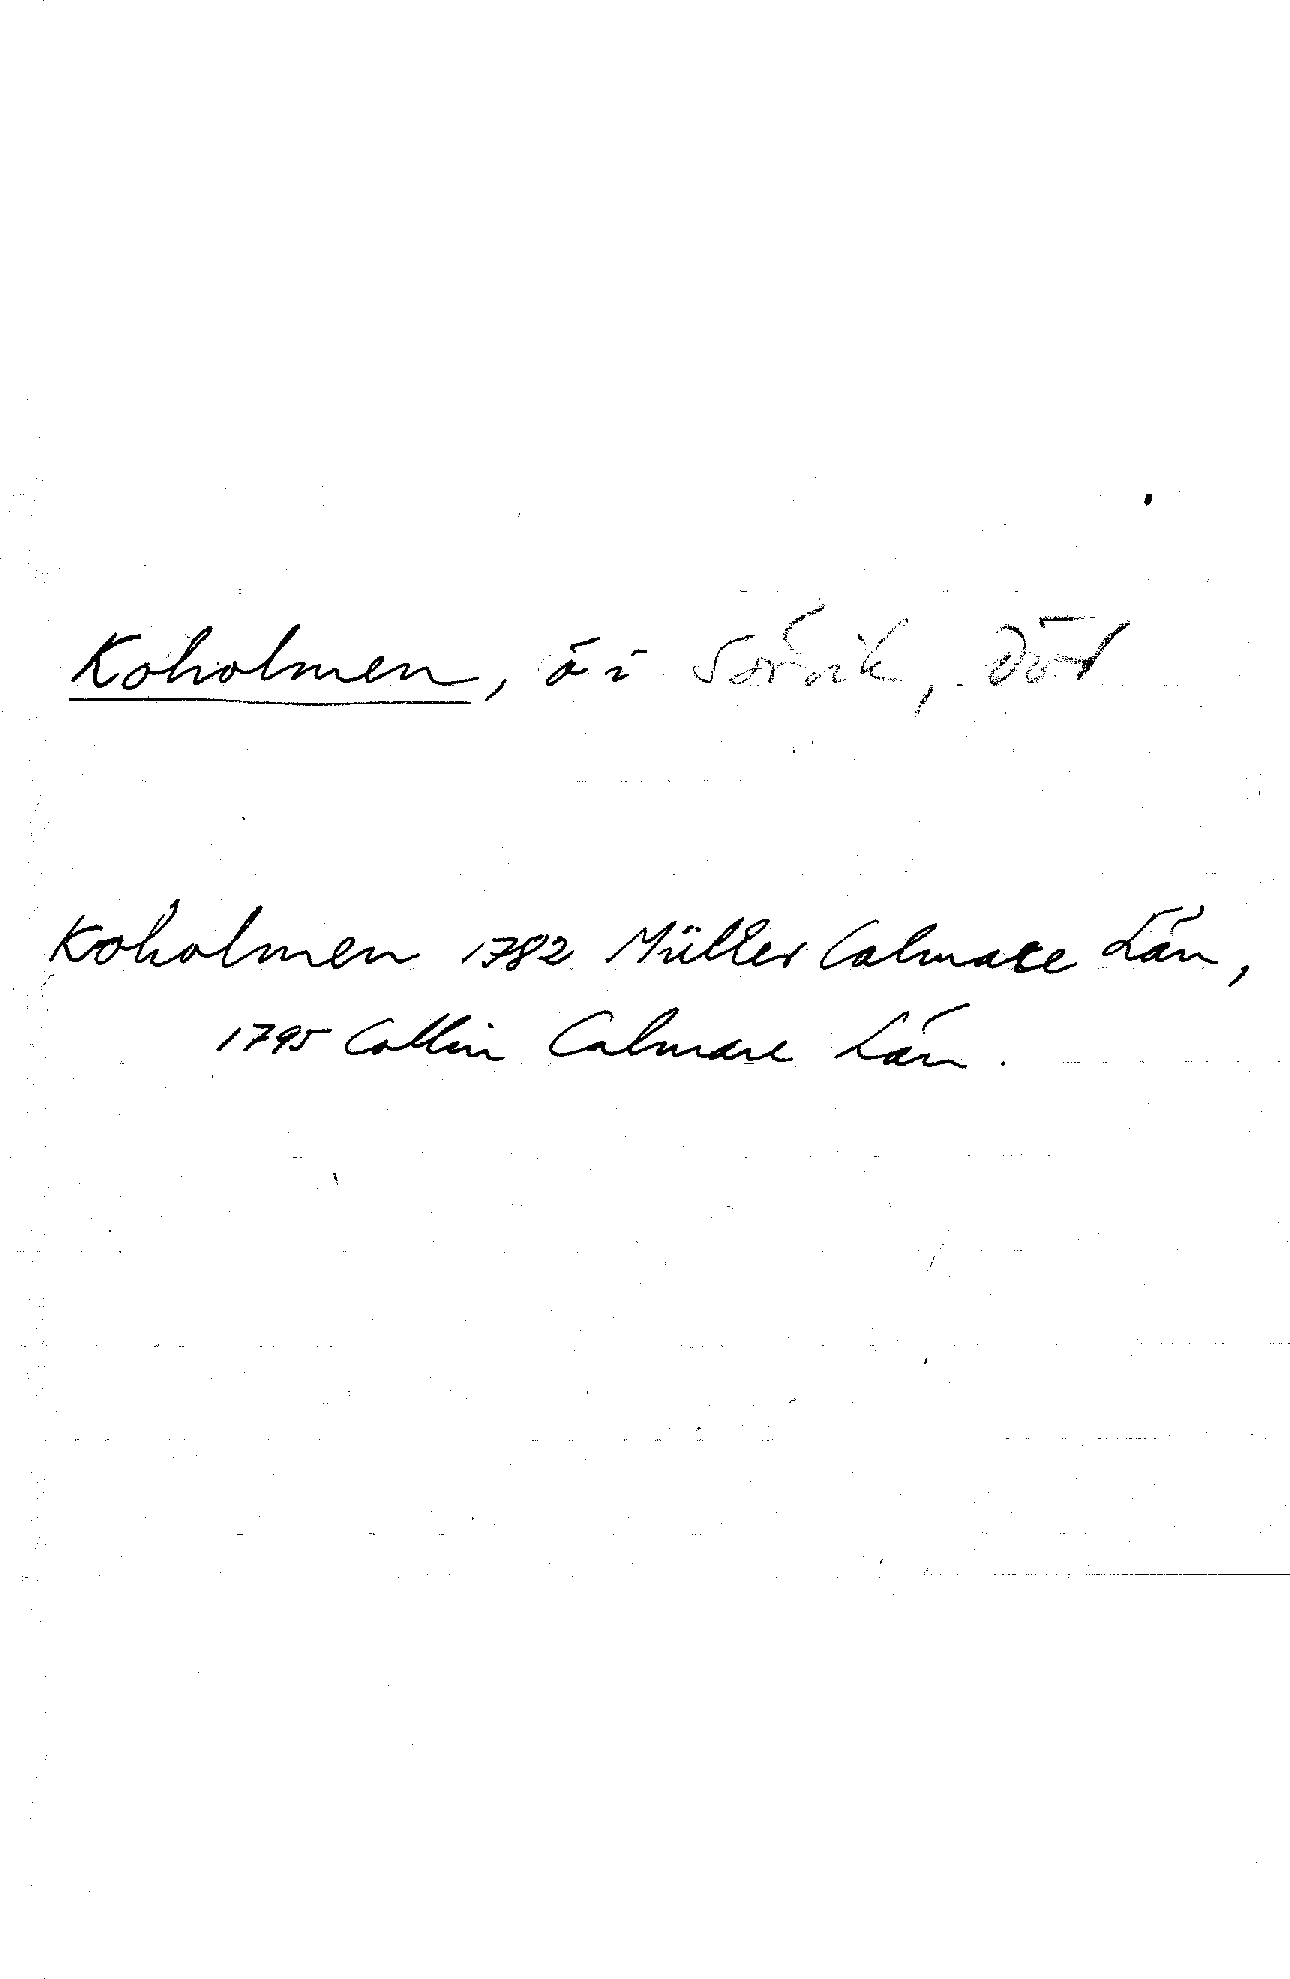 Koholmen, ö i Sörvik, Död
Koholmen 1782 Müller Calmare Län,
1795 Collin Calmare Län.